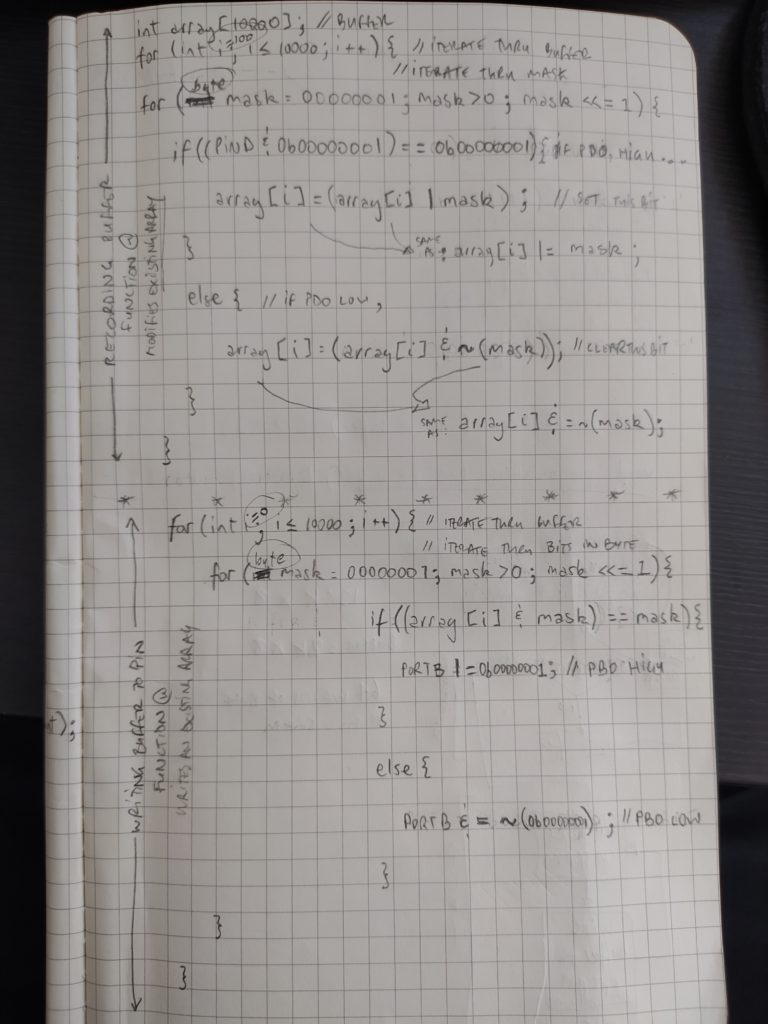 int array[10000]; // BUFFER
for (int i=0; i ≤ 10000; i++) { // ITERATE THRU BUFFER
// ITERATE THRU MASK
for (byte mask = 00000001; mask>0; mask <<= 1) {
if ((PIND & 0b00000001) == 0b00000001) { // IF PD0, HIGH ...
array[i] = (array[i] | mask); // SET THIS BIT
SAME AS: array[i] |= mask;
}
else { // if PD0 LOW,
array[i] = (array[i] & ~(mask)); // CLEAR THIS BIT
}
SAME AS: array[i] & = ~(mask);
}}
RECORDING BUFFER
FUNCTION
MODIFIES EXISTING ARRAY
* * * * * * * * *
for (int i=0; i ≤ 10000; i++) { // ITERATE THRU BUFFER
// ITERATE THRU BITS IN BYTE
for (byte mask = 00000001; mask>0; mask <<= 1) {
if ((array[i] & mask) == mask) {
PORTB |= 0b00000001; // PB0 HIGH
}
else {
PORTB & = ~(0b00000001); // PB0 LOW
}
}
}
WRITING BUFFER TO PIN
FUNCTION
WRITES AN EXISTING ARRAY
);